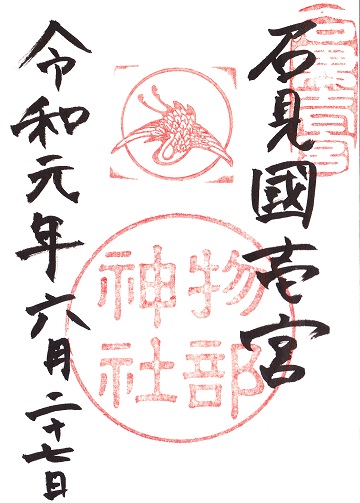 石見國壱宮
物部
神社
令和元年六月二十七日